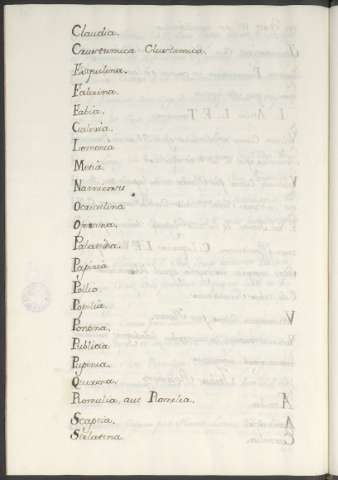 Claudia.
Crustumica Clustumica.
Esquilina.
Falerina.
Fabia.
Galeria.
Lemonia
Metia
Narniensis
Ocriculina
Ofentina.
Palatina.
Papiria
Pollio.
Pollia.
Pontina.
Publicia
Pupinia.
Quirina.
Romulia, aut Romilia.
Scapia.
Stelatina